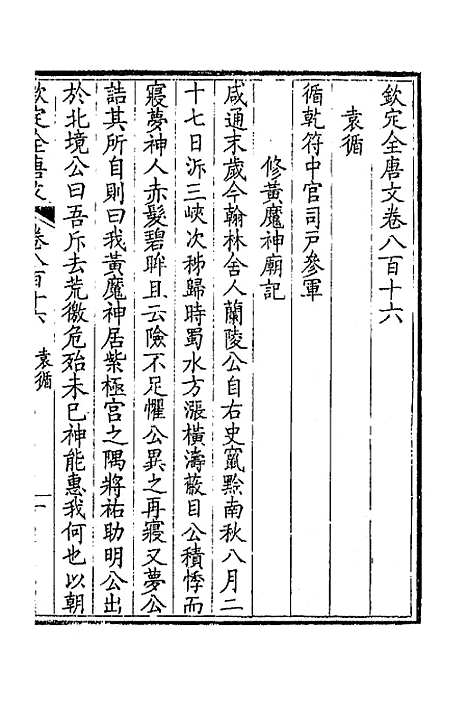 欽定全唐文卷八百十六
袁循
循乾符中官司戸參軍
修黃魔神廟記
咸通末歲今翰林舍人蘭陵公自右史竄黔南秋八月二
十七日泝三峽次秭歸時蜀水方漲橫濤蔽目公積悸而
寢夢神人赤髮碧眸且云險不足懼公異之再寢又夢公
詰其所自則曰我黃魔神居紫極宮之隅將祐助明公出
於北境公曰吾斥去荒徼危殆未巳神能惠我何也以朝
欽定全唐文 卷八百十六 袁循 一